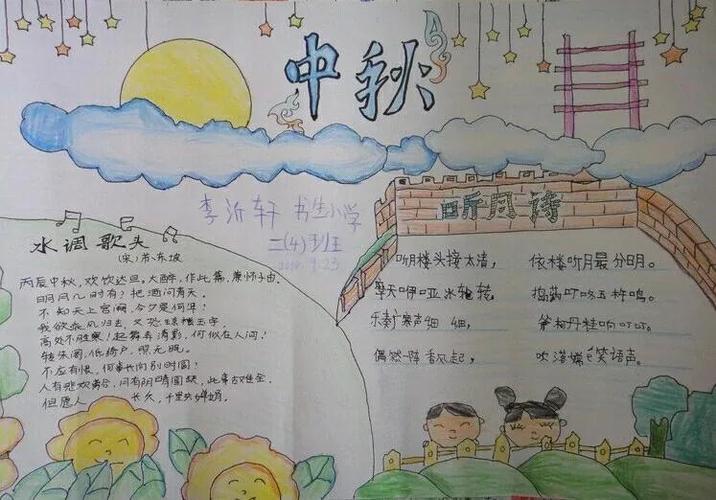 中秋
李沂轩 书生小学
二(4)班
9.23
水调歌头
(宋)苏东坡
丙辰中秋,欢饮达旦。大醉,作此篇,兼怀子由。
明月几时有?把酒问青天。
不知天上宫阙,今夕是何年?
我欲乘风归去,又恐琼楼玉宇,
高处不胜寒!起舞弄清影,何似在人间!
转朱阁,低绮户,照无眠。
不应有恨,何事长向别时圆?
人有悲欢离合,月有阴晴圆缺,此事古难全。
但愿人 长久,千里共婵娟。
听月诗
听楼头接太清, 依楼听月最分明。
摩天咿哑冰轮转, 捣药叮咚玉杵鸣。
乐奏广寒声细细, 斧柯丹桂响叮叮。
偶然一阵香风起, 吹落嫦娥笑语声。